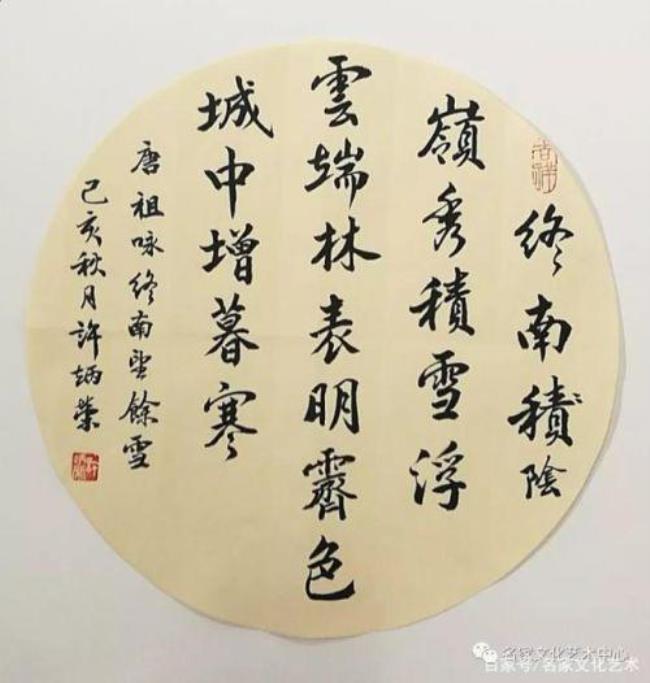 吉祥
終南積陰
嶺秀積雪浮
雲端林表明霽色
城中增暮寒
唐祖咏終南望餘雪
己亥秋月許炳榮
名家文化艺术中心
百家号/名家文化艺术